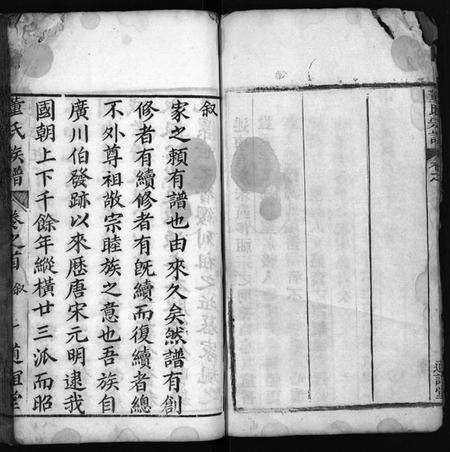 叙
家之頼有譜也由來久矣然譜有創
修者有續修者有既續而復續者總
不外尊祖敬宗睦族之意也吾族自
廣川伯發跡以來歷唐宋元明逮我
國朝上下千餘年縱橫廿三派而昭
董氏族譜 卷之首 叙 一 道誼堂